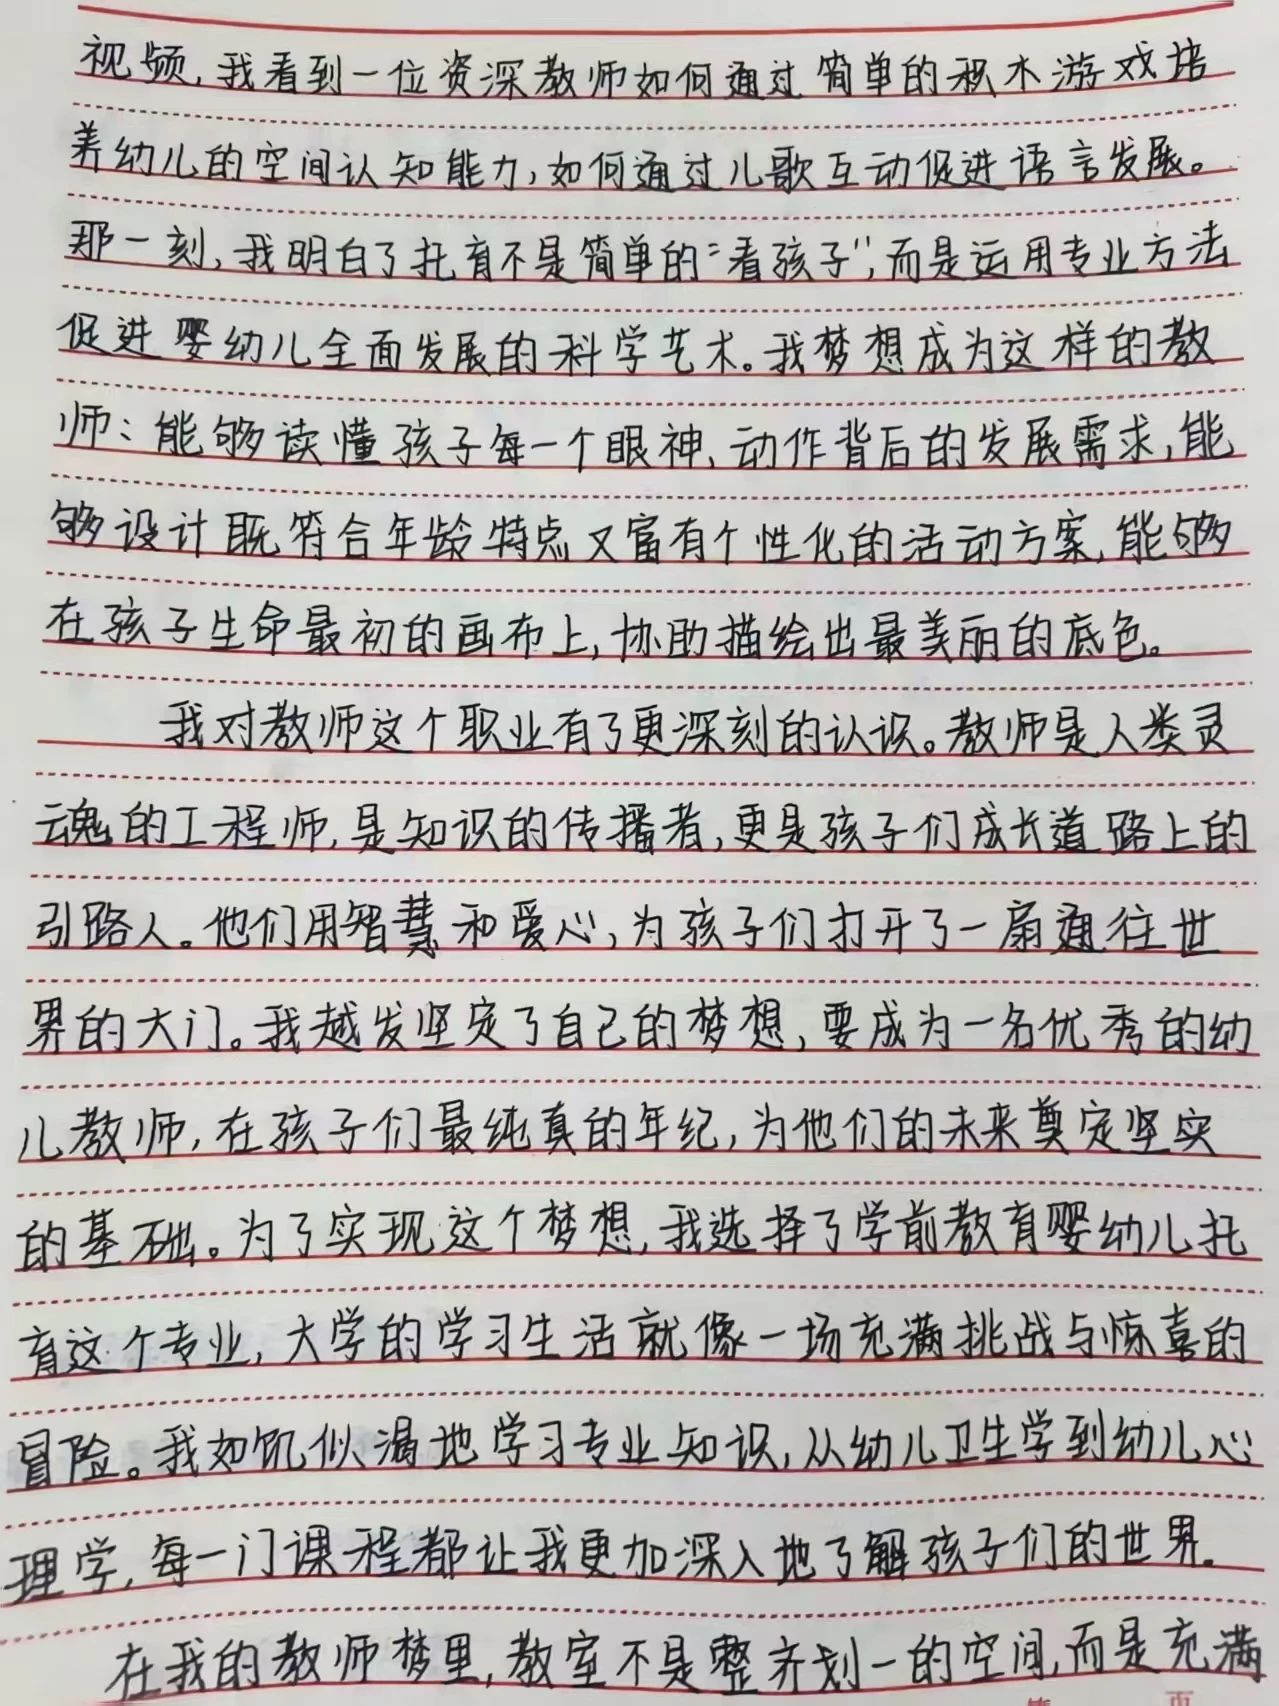 视频,我看到一位资深教师如何通过简单的积木游戏培
养幼儿的空间认知能力,如何通过儿歌互动促进语言发展。
那一刻,我明白了托育不是简单的“看孩子”,而是运用专业方法
促进婴幼儿全面发展的科学艺术。我梦想成为这样的教
师:能够读懂孩子每一个眼神、动作背后的发展需求,能
够设计既符合年龄特点又富有个性化的活动方案,能够
在孩子生命最初的画布上,协助描绘出最美丽的底色。
我对教师这个职业有了更深刻的认识。教师是人类灵
魂的工程师,是知识的传播者,更是孩子们成长道路上的
引路人。他们用智慧和爱心,为孩子们打开了一扇通往世
界的大门。我越发坚定了自己的梦想,要成为一名优秀的幼
儿教师,在孩子们最纯真的年纪,为他们的未来奠定坚实
的基础。为了实现这个梦想,我选择了学前教育婴幼儿托
育这个专业,大学的学习生活就像一场充满挑战与惊喜的
冒险。我如饥似渴地学习专业知识,从幼儿卫生学到幼儿心
理学,每一门课程都让我更加深入地了解孩子们的世界.
在我的教师梦里,教室不是整齐划一的空间,而是充满